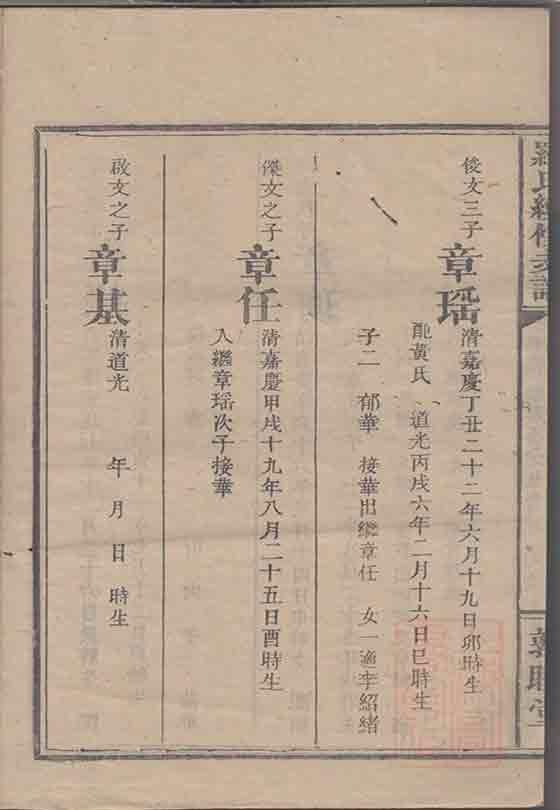 羅氏續修支譜
敦睦堂
俊文三子
章瑶
清嘉慶丁丑二十二年六月十九日卯時生
配黃氏 道光丙戌六年二月十六日巳時生
子二 郁華 接華出繼章任 女一適李紹緒
傑文之子
章任
清嘉慶甲戌十九年八月二十五日酉時生
入繼章瑶次子接華
啟文之子
章基
清道光 年 月 日 時生